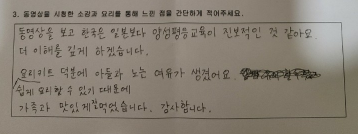 3. 동영상을 시청한 소감과 요리를 통해 느낀 점을 간단하게 적어주세요.
동영상을 보고 한국은 일본보다 양성평등교육이 진보적인 것 같아요.
더 이해를 깊게 하겠습니다.
요리키트 덕분에 아들과 노는 여유가 생겼어요.
쉽게 요리할 수 있기 때문에
가족과 맛있게 잘 먹었습니다. 감사합니다.